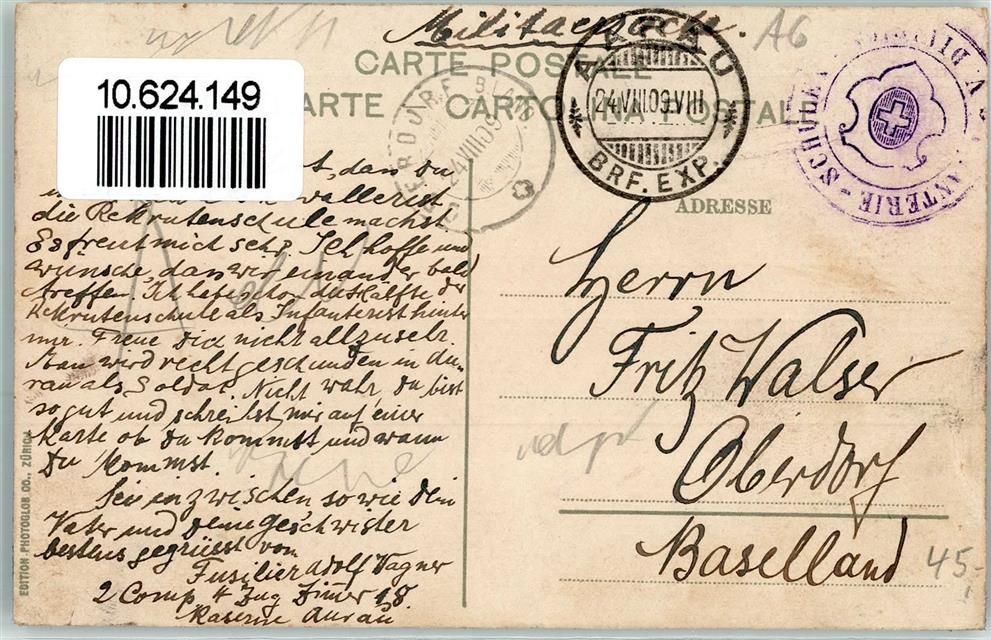 Militärsache.
CARTE POSTALE
CARTOLINA POSTALE
10.624.149
AARAU
24.VIII.09.VIII
BRF. EXP.
24 VIII 09
INFANTERIE-SCHULE
V DIVISION
ADRESSE
dass du
Kavallerist
die Rekrutenschule machst
Es freut mich sehr. Ich hoffe und
wünsche, dass wir einander bald
treffen. Ich habe schon die Hälfte der
Rekrutenschule als Infanterist hinter
mir. Freue Dich nicht allzusehr.
Man wird recht geschunden in Au-
rau als Soldat. Nicht wahr, du bist
so gut und schreibst mir auf einer
Karte ob du kommst und wann
Du kommst.
Sei inzwischen sowie dein
Vater und deine Geschwister
bestens gegrüsst von
Fusilier Adolf Wagner
2 Comp 4 Zug Zimer 18.
Kaserne Aurau
Herrn
Fritz Walser
Oberdorf
Baselland
A6
45.-
EDITION PHOTOGLOB CO., ZÜRICH